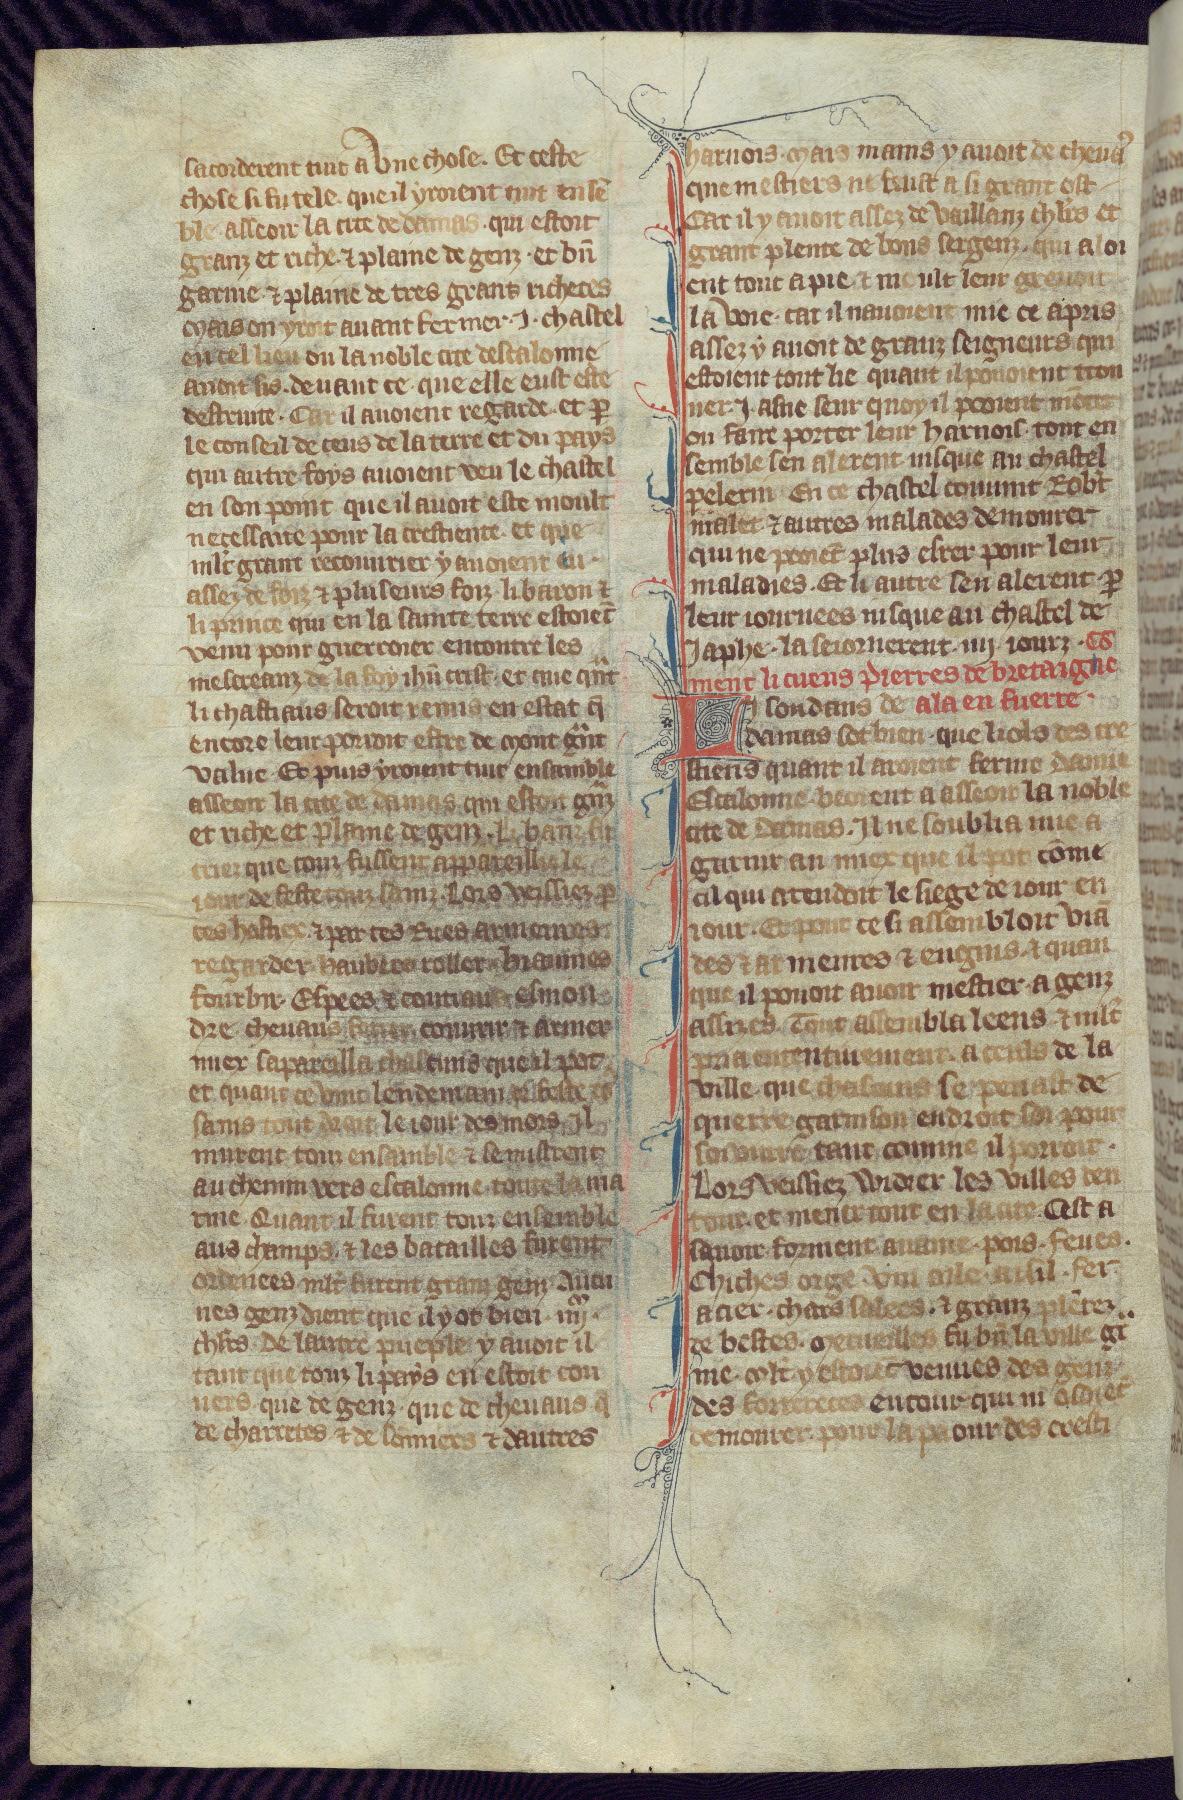 sacorderent tuit a Une chose. Et ceste
chose si fu tele. que il yroient tuit ensē
ble asseoir la cite de damas. qui estoit
granz et riche. & plaine de genz. et bn̄
garnie. & plaine de tres grans richeces
Mais on yroit auant fermer .J. chastel
en cel lieu ou la noble cite descalonne
auoit sis. deuant ce que elle eust este
destruite. Car il auoient regarde. et ꝑ
le conseil de ceus de la terre et du pays
qui autre foys auoient veu le chastel
en son point que il auoit este moult
necessaire pour la crestiente. et que
mlt̄ grant recouurier y auoient eu.
assez de foiz & pluseurs foiz. li baron &
li prince qui en la sainte terre estoiēt
venu pour guerroier encontre les
mescreanz de la foy ihū crist. et que qn̄t
li chastiaus seroit remis en estat q̄
encore leur porroit estre de Mont gn̄t
value. Et puis yroient tuit ensamble
asseoir la cite de damas qui estoit gn̄z
et riche et plaine de genz. Li banz fu
criez que touz fussent appareillie le
iour de feste touz sainz. Lors veissiez ꝑ
ces hostiex. & par ces Rues armeures
regarder. haubers roller. hiaumes
fourbir. Espees & coutiaus esmou
dre. cheuaus couurir & armer
miex sapareilla chascuns que il pot.
et quant ce vint lendemain de feste to
sains tout droit le iour des mors. Il
murent touz ensamble & se mistrent
au chemin vers escalonne. toute la ma
rine. Quant il furent touz ensemble
aus champs. & les batailles furent
ordenees mlt̄ furent granz genz. Aucu
nes genz dient que il y ot bien .iiij.
chlrs. De lautre pueple y auoit il
tant que touz li pays en estoit cou
uers. que de genz. que de cheuaus q̄
de charretes & de somiers & dautres
harnois. Mais mains y auoit de cheuaˢ
que mestiers ne fust a si grant ost
Car il y auoit assez de vaillanz chlrs et
grant plente de bons sergenz. qui aloi
ent tout a pie. & moult leur greuoit
la voie. car il nauoient mie ce apris
assez y auoit de granz seigneurs qui
estoient tout lie quant il pouoient trou
uer .J. asne seur quoy il pooient mōter
ou faire porter leur harnois. tout en
semble sen alerent iusque au chastel
pelerin. En ce chastel couuint Robt̄
malet & autres malades demourer
qui ne pooiēt plus esrer pour leur
maladies. Et li autre sen alerent ꝑ
leur iournees iusque au chastel de
Japhe. la seiornerent .iiij. iourz. Co
ment li cuens Pierres de bretaigne
ala en fuerre.
Li soudans de
damas sot bien. que li os des cre
stiens quant il aroient ferme
Escalonne. beoient a asseoir la noble
cite de Damas. Il ne soublia mie a
garnir au miex que il pot cōme
cil qui atendoit le siege de iour en
iour. Et pour ce si assembloit viā
des & armeures & engins. & quan
que il pouoit auoir mestier. a genz
assizes. Tout assembla leens. & mlt̄
pria ententiuement. a ceuls de la
ville. que chascuns se penast de
querre garnison endroit soi pour
soi viure tant comme il porroit.
Lors veissiez widier les villes den
tour. et mener tout en la cite. Cest a
sauoir. forment auaine. pois. feues.
Chiches orge. vin fer
acier. chars salees. & granz plētez
de bestes. bn̄ la ville gar
nie. Mlt̄ y estoiēt venues des genz
des fortereces entour. qui ni osoiēt
demourer. pour la paour des cresti